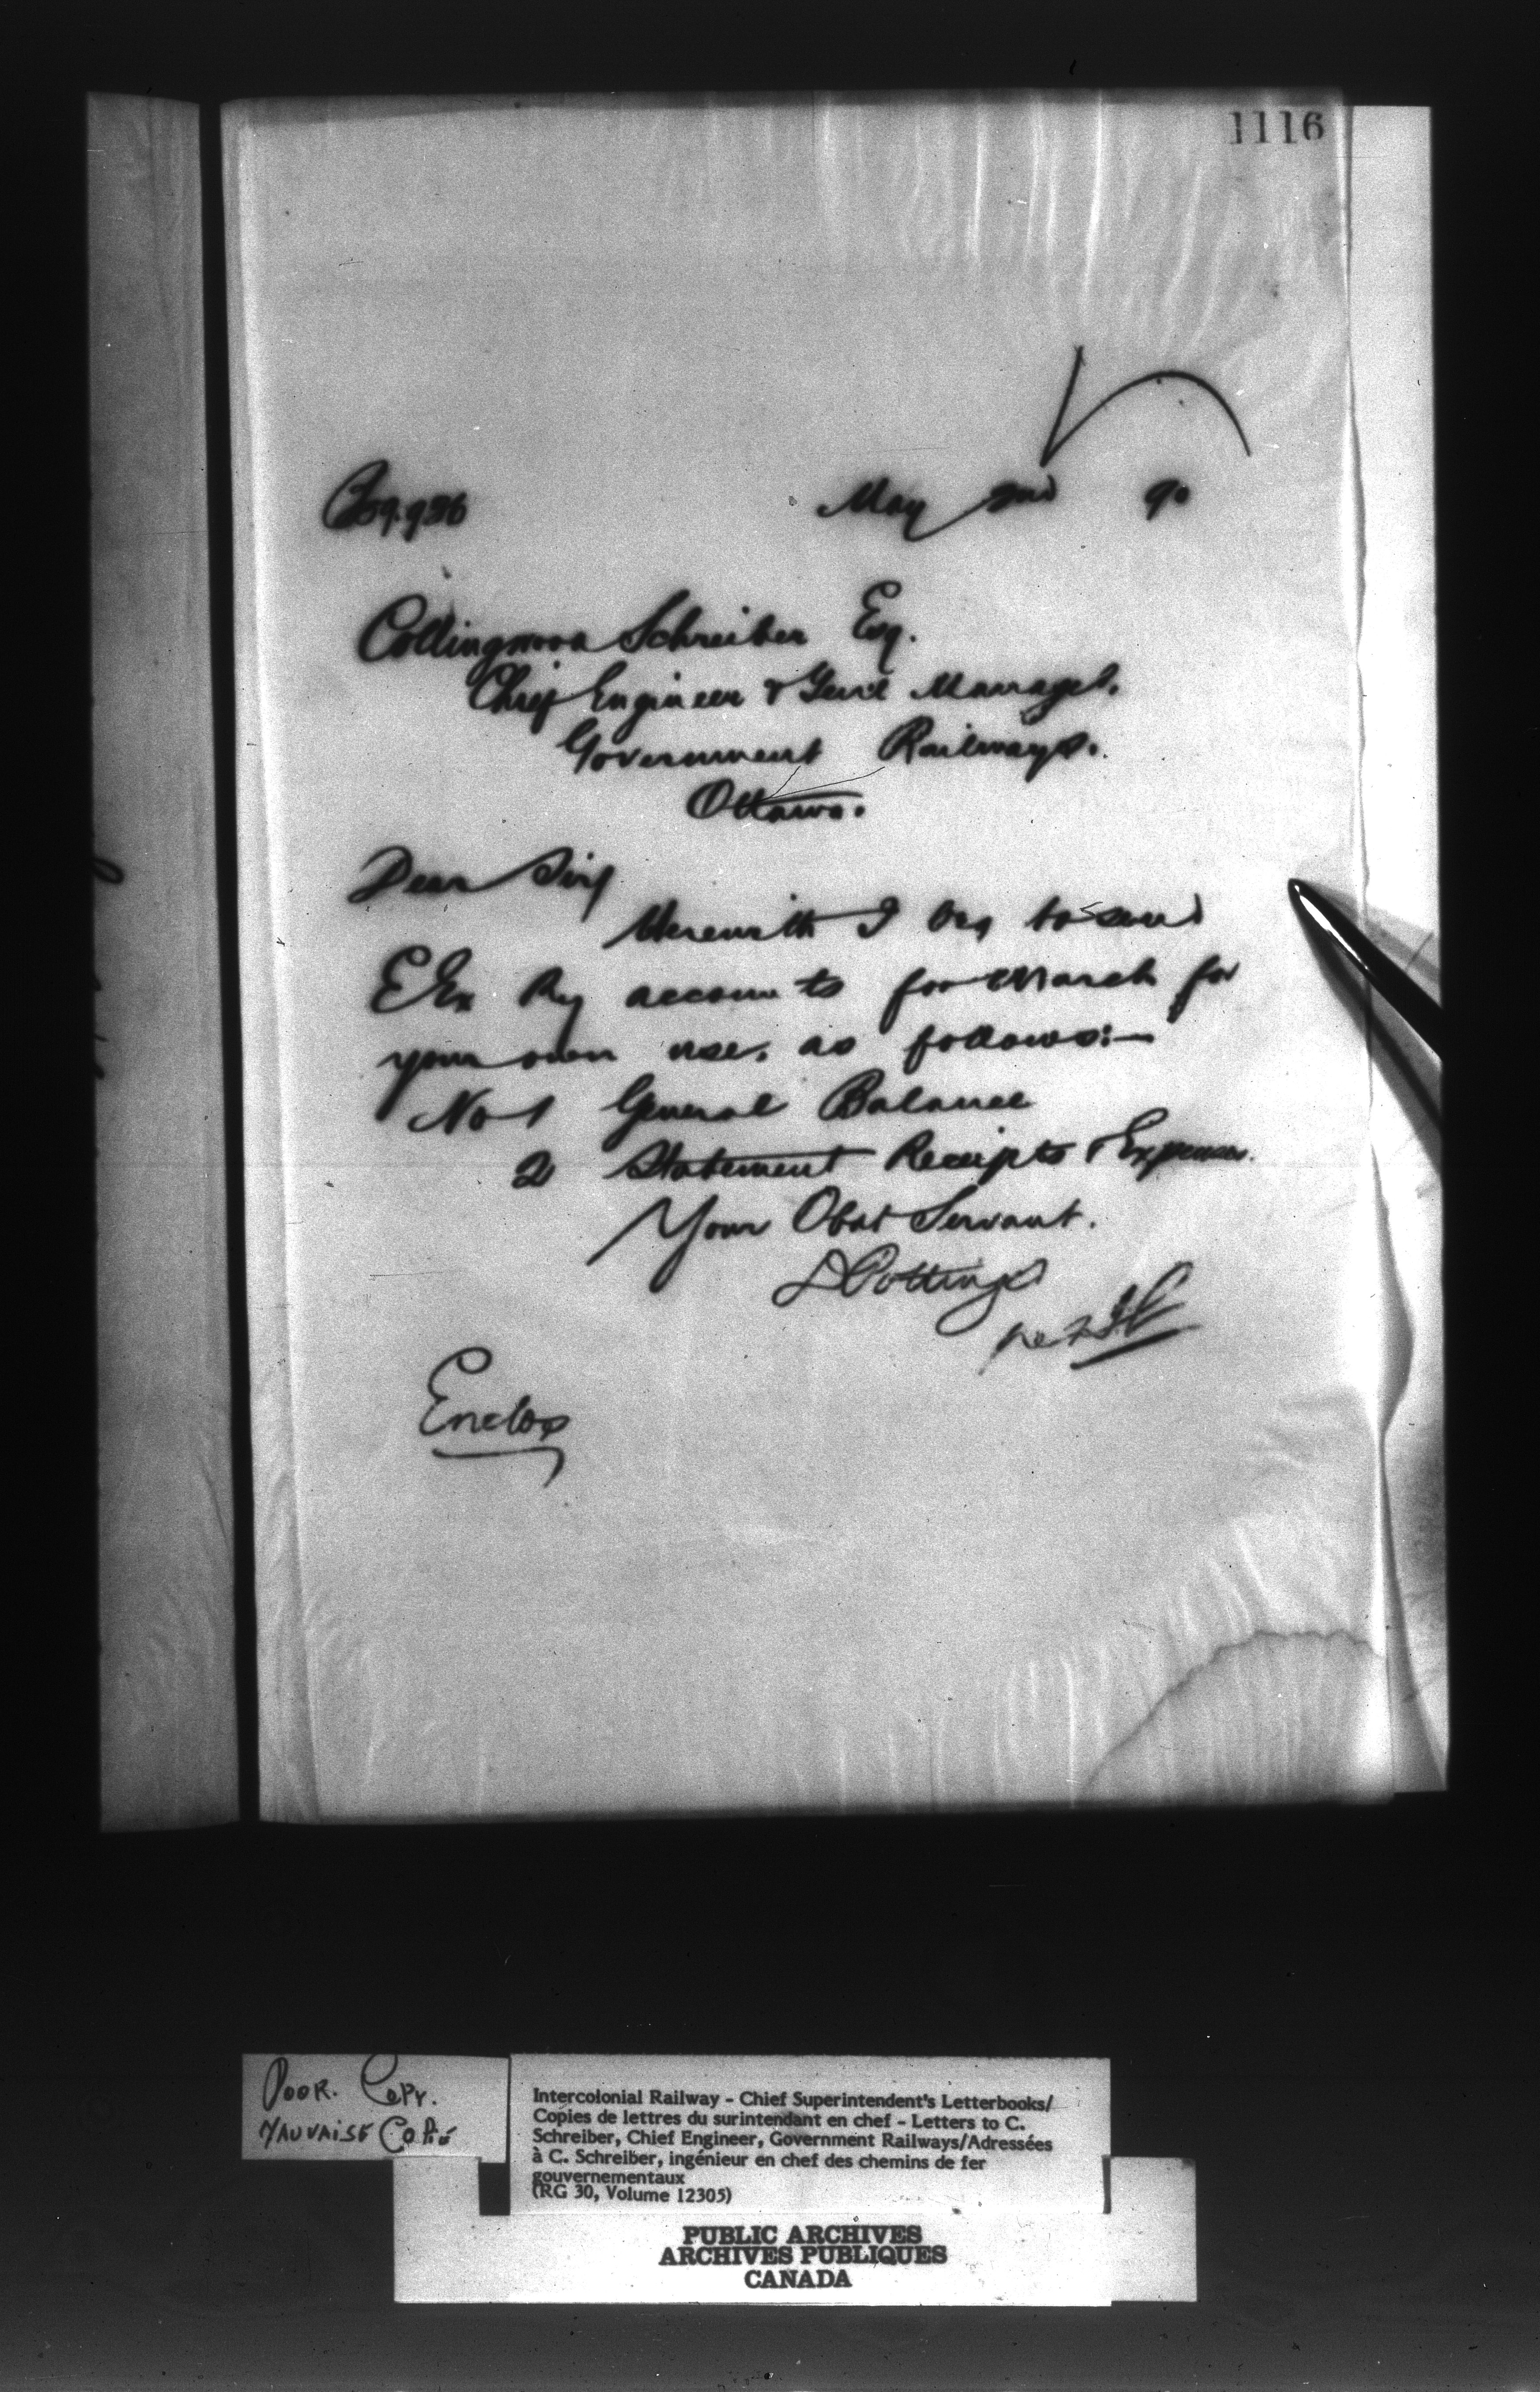 1116
May 2nd 90
Collingwood Schreiber Esq.
Chief Engineer & Genl Manager.
Government Railways.
Ottawa.
Dear Sir
Herewith I beg to send
E Ex Ry accounts for March for
your own use, as follows:—
No 1 General Balance
2 Statement Receipts & Expenses.
Your Obdt Servant.
D Pottinger
Enclos
POOR. COPY.
MAUVAISE COPIE
Intercolonial Railway - Chief Superintendent's Letterbooks/
Copies de lettres du surintendant en chef - Letters to C.
Schreiber, Chief Engineer, Government Railways/Adressées
à C. Schreiber, ingénieur en chef des chemins de fer
gouvernementaux
(RG 30, Volume 12305)
PUBLIC ARCHIVES
ARCHIVES PUBLIQUES
CANADA